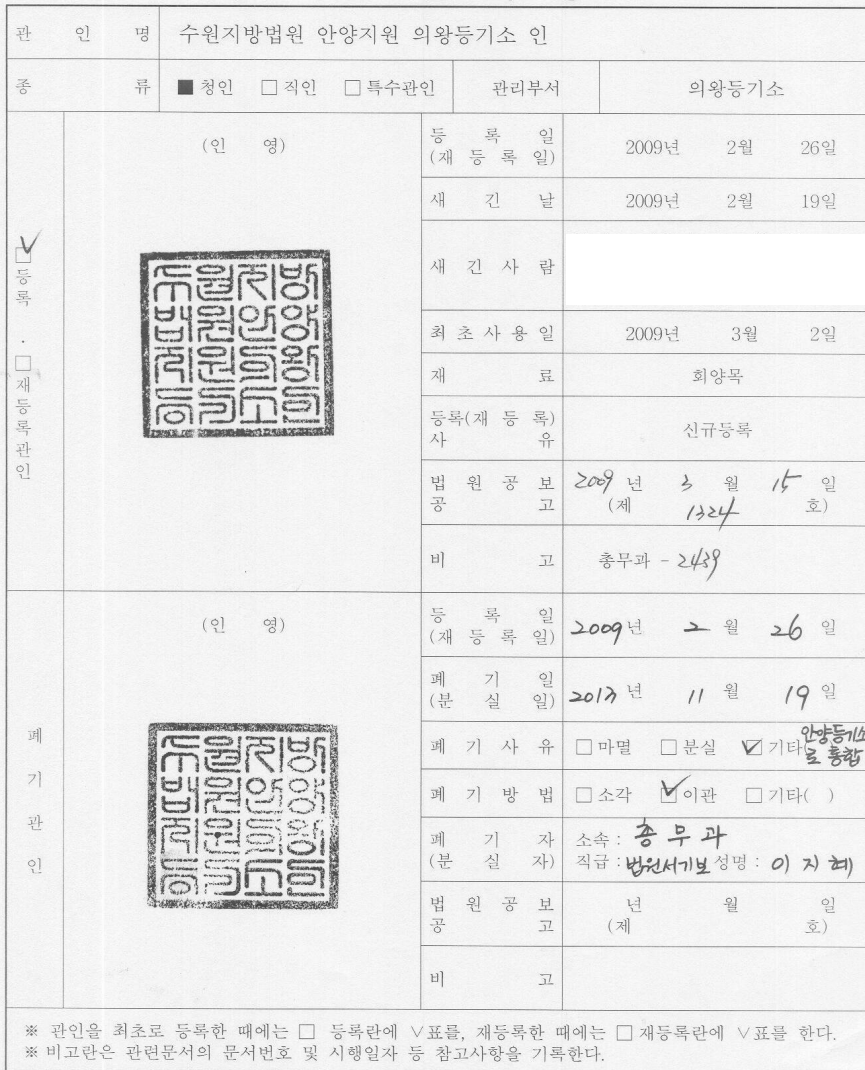 관 인 명 수원지방법원 안양지원 의왕등기소 인
종 류 ■ 청인 □ 직인 □ 특수관인 관리부서 의왕등기소
□ 등록 · □ 재등록관인
(인 영)
등 록 일
(재 등 록 일) 2009년 2월 26일
새 긴 날 2009년 2월 19일
새 긴 사 람
수원지방
법원안양
지원의왕
등기소인
최 초 사 용 일 2009년 3월 2일
재 료 회양목
등록(재 등 록)
사 유 신규등록
법 원 공 보
공 고 2009 년 3 월 15 일
(제 1324 호)
비 고 총무과 - 2439
폐 기 관 인
(인 영)
등 록 일
(재 등 록 일) 2009년 2 월 26 일
폐 기 일
(분 실 일) 2013 년 11 월 19 일
수원지방
법원안양
지원의왕
등기소인
폐 기 사 유 □ 마멸 □ 분실 ☑ 기타(안양등기소
로 통합
폐 기 방 법 □ 소각 ☑ 이관 □ 기타( )
폐 기 자
(분 실 자) 소속 : 총무과
직급 : 법원서기보 성명 : 이지혜
법 원 공 보
공 고 년 월 일
(제 호)
비 고
※ 관인을 최초로 등록한 때에는 □ 등록란에 ∨표를, 재등록한 때에는 □ 재등록란에 ∨표를 한다.
※ 비고란은 관련문서의 문서번호 및 시행일자 등 참고사항을 기록한다.